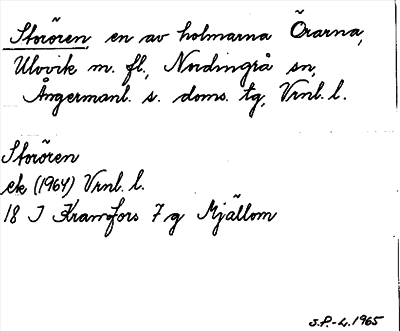 Storören, en av holmarna Örarna,
Ulvvik m. fl., Nordingrå sn,
Ångermanl. s. doms. tg, Vrnl. l.
Storören
ek (1964) Vrnl. l.
18 J Kramfors 7 g Mjällom
S.P.-L. 1965